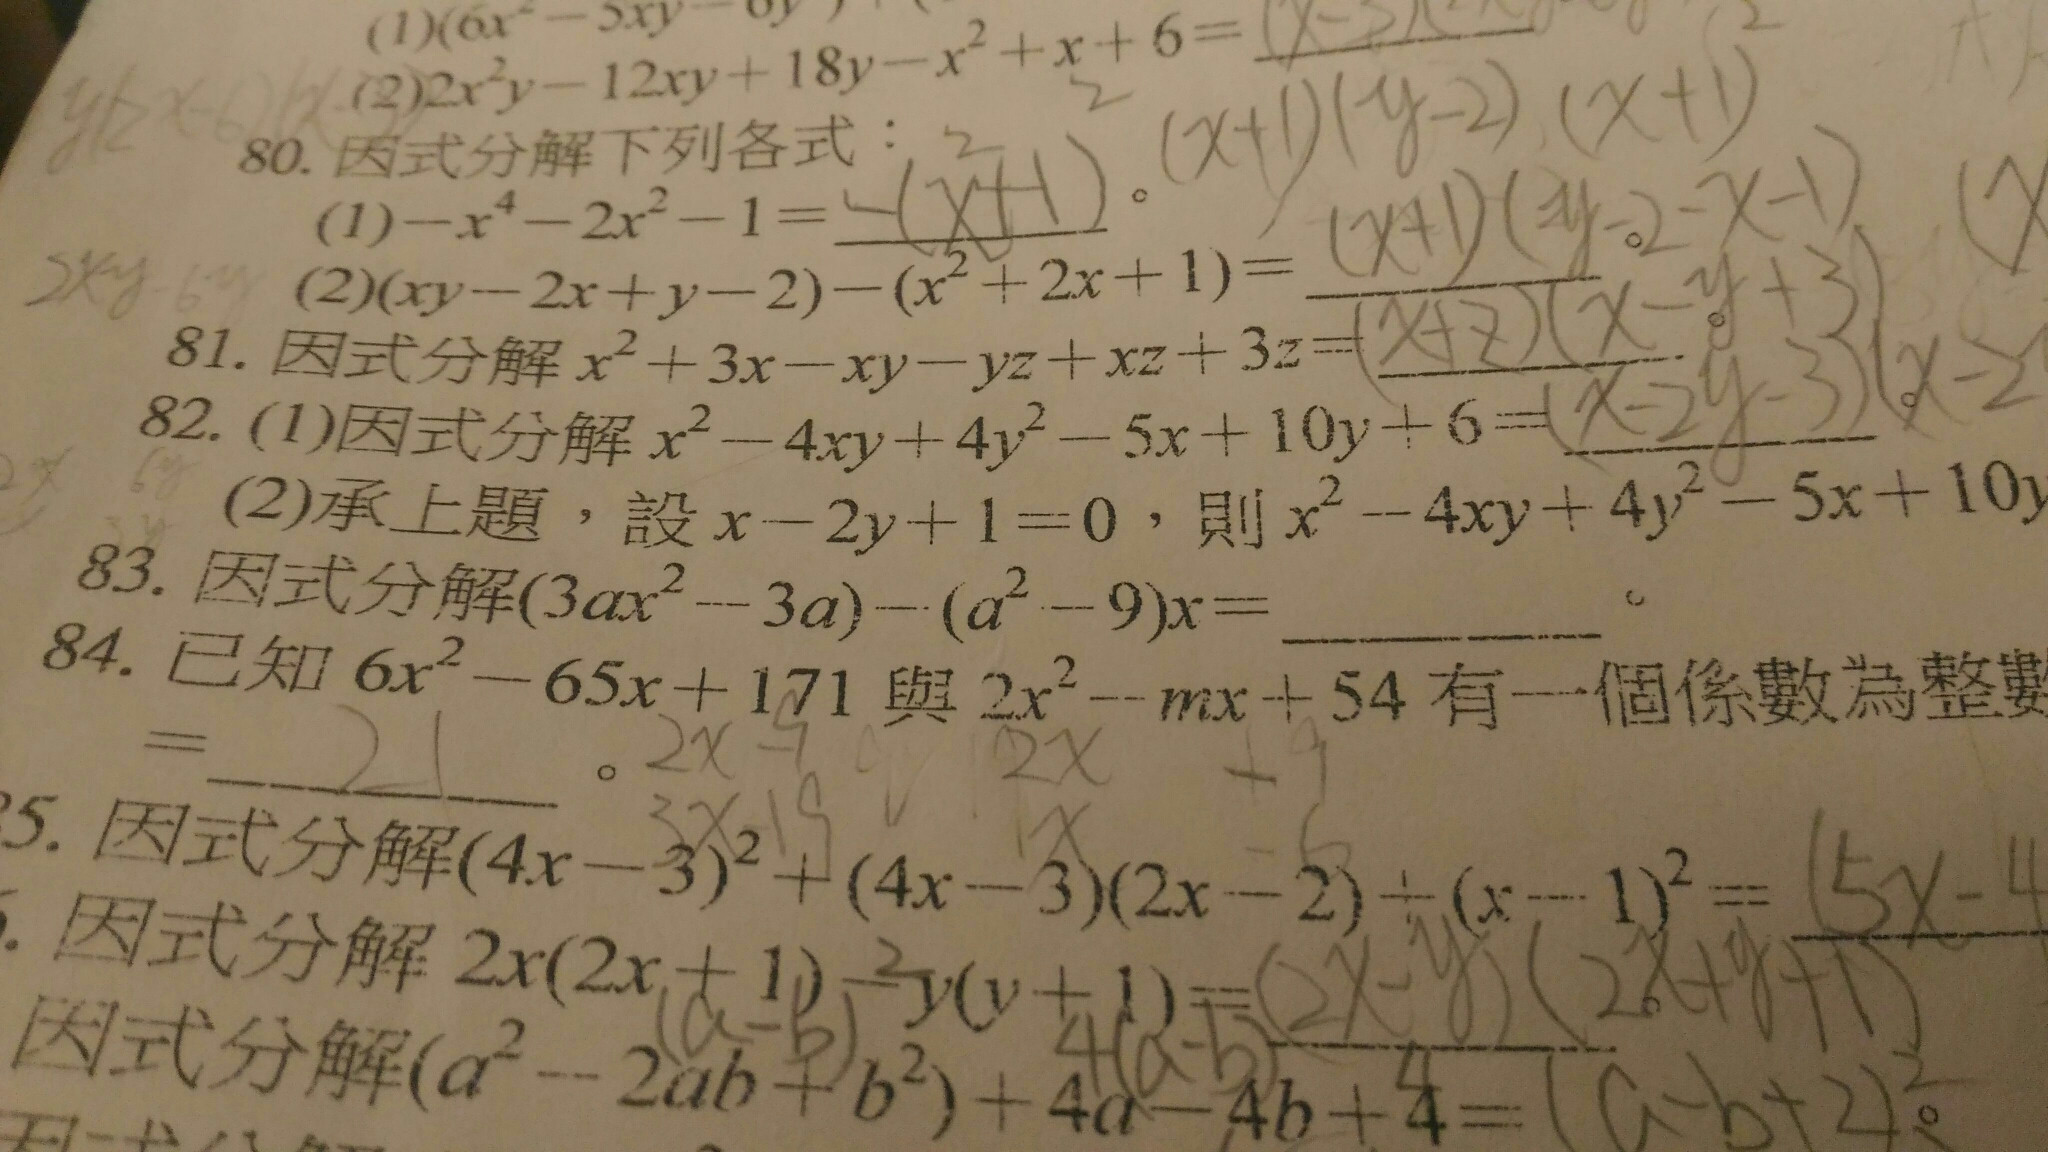 (1)(6x²－5xy－6y²)
(2)2x²y－12xy＋18y－x²＋x＋6＝
80. 因式分解下列各式：
(x+1)(y-2) (x+1)²
(1)－x⁴－2x²－1＝-(x²+1)²。
(2)(xy－2x＋y－2)－(x²＋2x＋1)＝(x+1)(y-2-x-1)。
81. 因式分解 x²＋3x－xy－yz＋xz＋3z＝(x+z)(x-y+3)。
82. (1)因式分解 x²－4xy＋4y²－5x＋10y＋6＝(x-2y-3)(x-2。
(2)承上題，設 x－2y＋1＝0，則 x²－4xy＋4y²－5x＋10y
83. 因式分解(3ax²－3a)－(a²－9)x＝。
84. 已知 6x²－65x＋171 與 2x²－mx＋54 有一個係數為整數
＝21。
2x -9 2x +9
3x -19 x -6
85. 因式分解(4x－3)²＋(4x－3)(2x－2)＋(x－1)²＝(5x-4
因式分解 2x(2x＋1)－y(y＋1)＝(2x-y)(2x+y+1)。
(a-b)² 4(a-b) 4
因式分解(a²－2ab＋b²)＋4a－4b＋4＝(a-b+2)²。